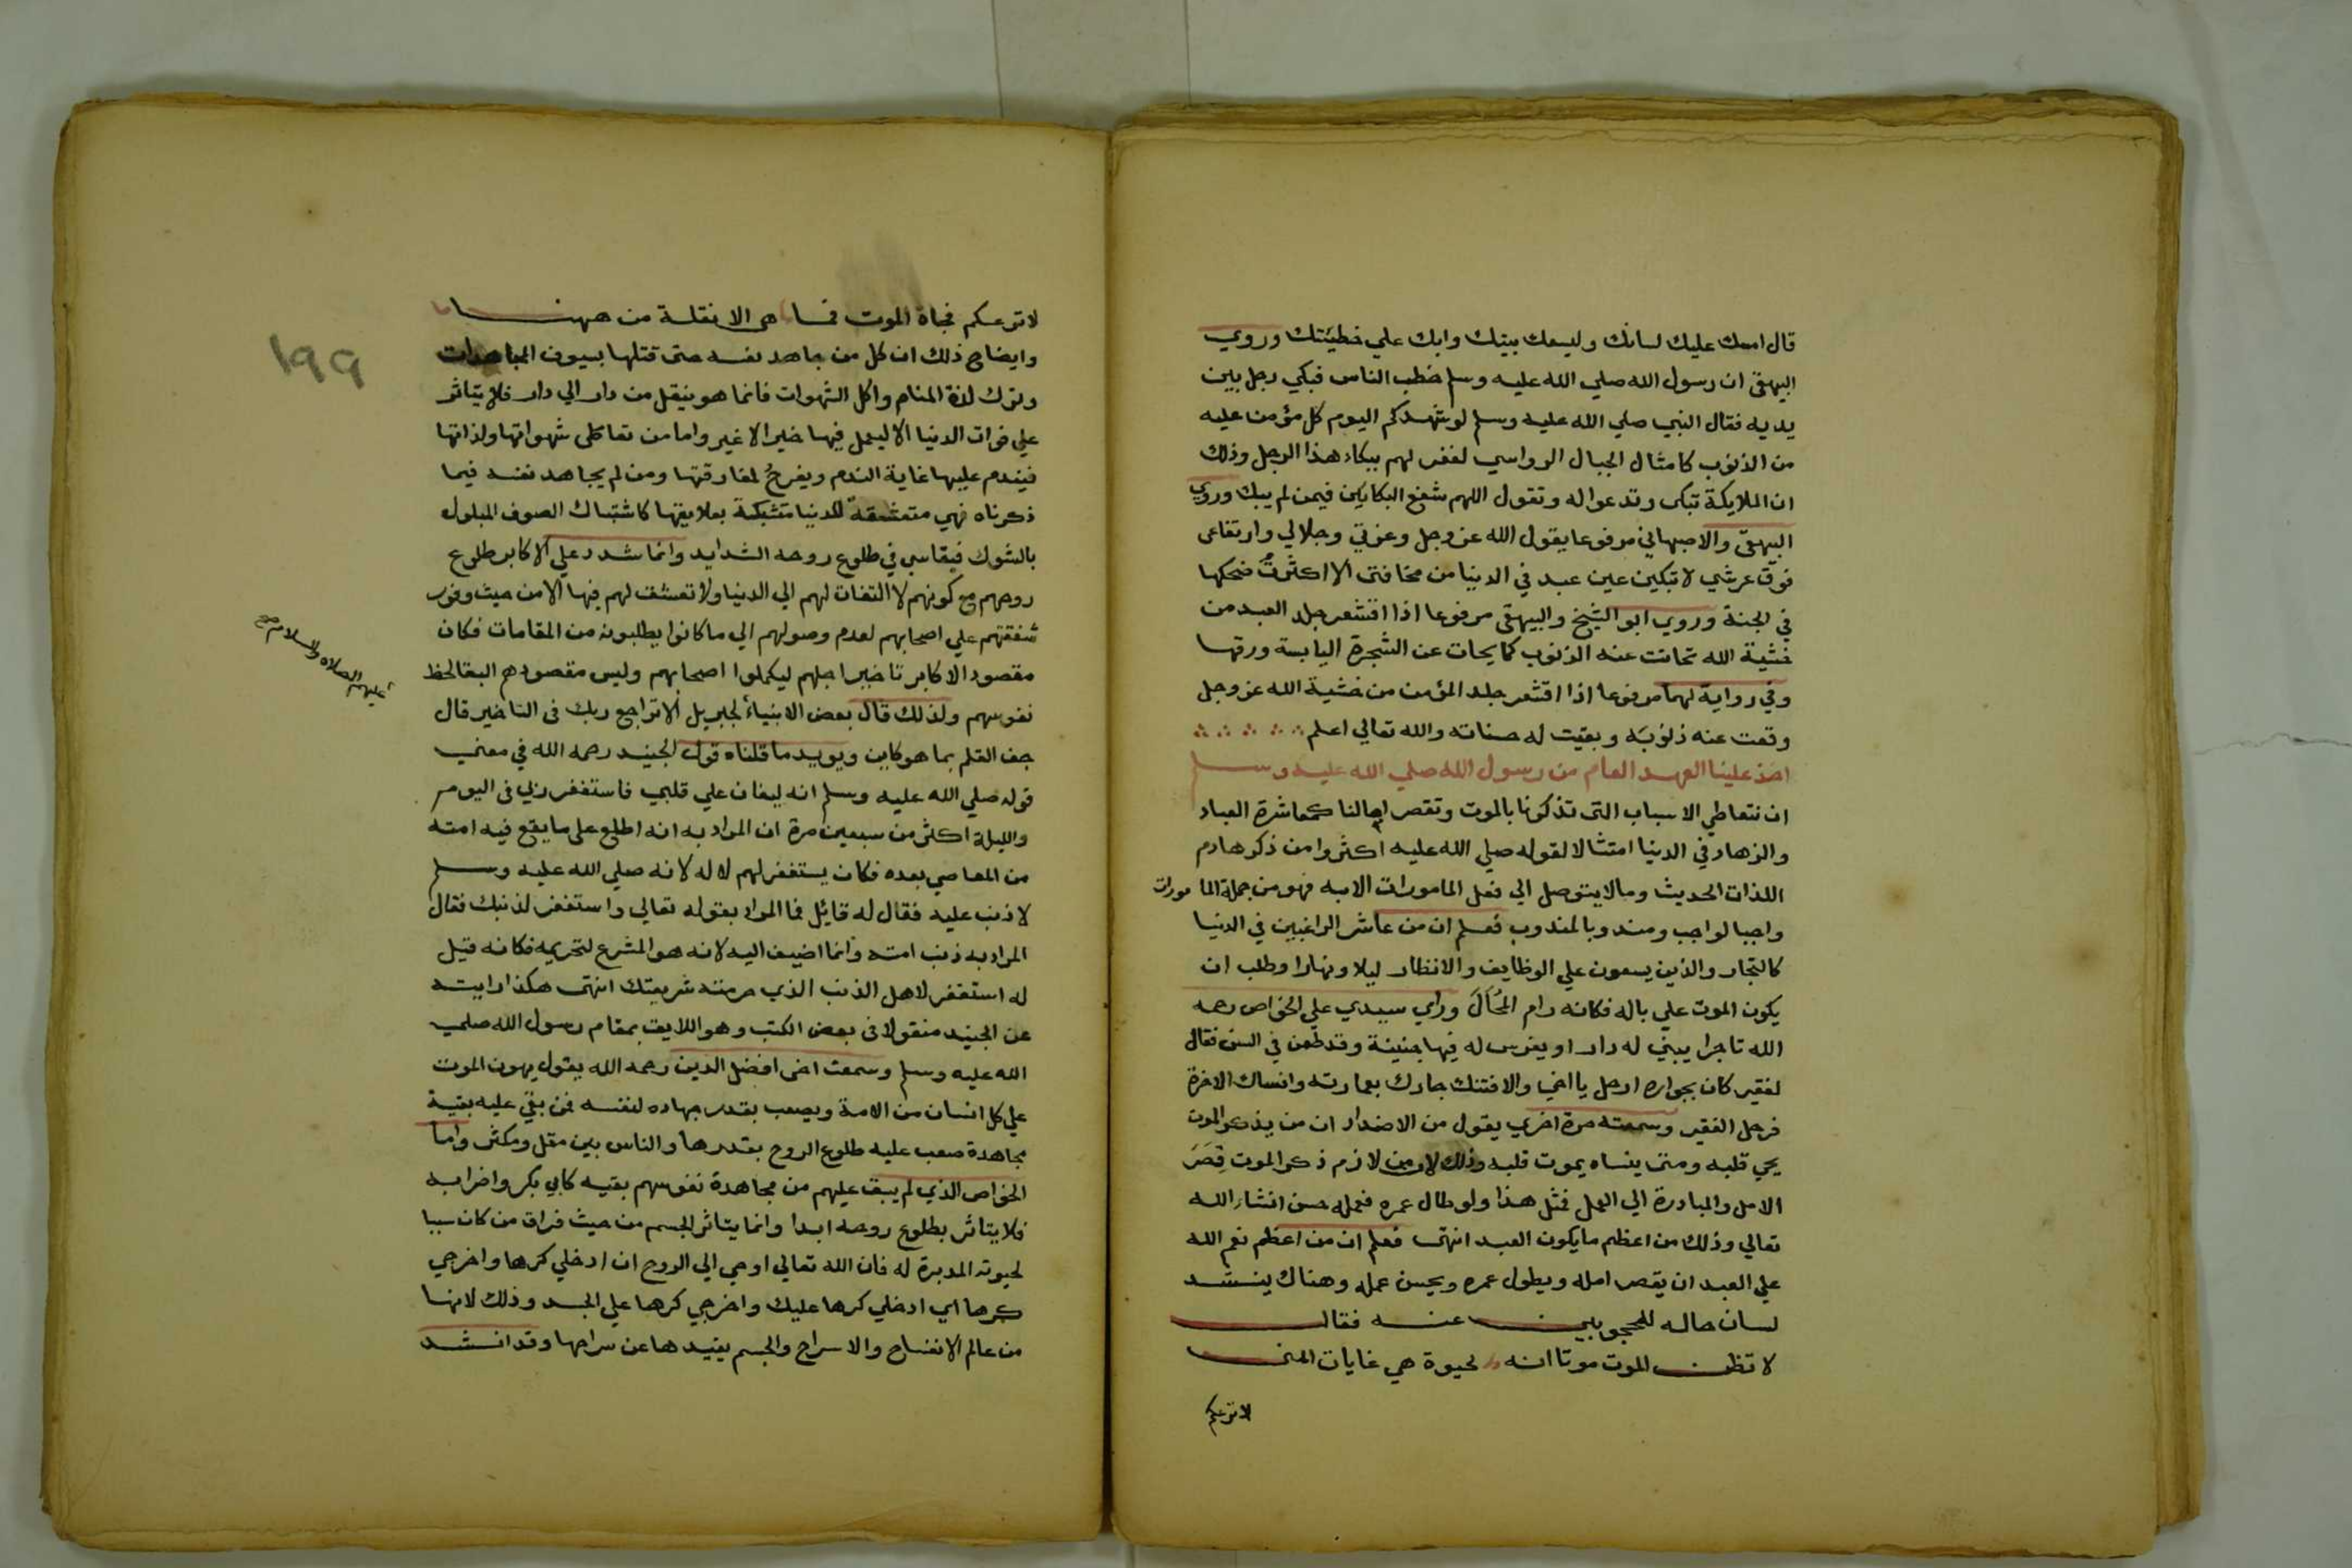 قال امسك عليك لسانك وليسعك بيتك وابك علي خطيئتك وروي
البيهقي ان رسول الله صلي الله عليه وسلم خطب الناس فبكي رجل بين
يديه فقال النبي صلي الله عليه وسلم لو شهدكم اليوم كل مؤمن عليه
من الذنوب كامثال الجبال الرواسي لغفر لهم ببكاء هذا الرجل وذلك
ان الملايكة تبكي وتدعوا له وتقول اللهم شفع البكايين فيمن لم يبك وروي
البيهقي والاصبهاني مرفوعا يقول الله عز وجل وعزتي وجلالي وارتفاعي
فوق عرشي لا تبكين عين عبد في الدنيا من مخافتي الا اكثرت ضحكها
في الجنة وروي ابو الشيخ والبيهقي مرفوعا اذا اقشعر جلد العبد من
خشية الله تحاتت عنه الذنوب كما يحات عن الشجرة اليابسة ورقها
وفي رواية لهما مرفوعا اذا اقشعر جلد المؤمن من خشية الله عز وجل
وقعت عنه ذنوبه وبقيت له حسناته والله تعالي اعلم
اخذ علينا العهد العام من رسول الله صلي الله عليه وسلم
ان نتعاطي الاسباب التي تذكرنا بالموت وتقصر امالنا كمعاشرة العباد
والزهاد في الدنيا امتثالا لقوله صلي الله عليه اكثروا من ذكر هادم
اللذات الحديث ومالا يتوصل الي فعل المامورات الا به فهو من جملة المامورات
واجبا لواجب ومندوبا لمندوب فعلم ان من عاشر الراغبين في الدنيا
كالتجار والذين يسعون علي الوظايف والانظار ليلا ونهارا وطلب ان
يكون الموت علي باله فكانه رام المحال وراي سيدي علي الخواص رحمه
الله تاجرا يبني له دار او يغرس له فيها جنينة وقد طعن في السن فقال
لفقير كان بجواره ارحل يا اخي والا فتنك جارك بعمارته وانساك الاخرة
فرحل الفقير وسمعته مرة اخري يقول من الاضداد ان من يذكر الموت
يحي قلبه ومتي ينساه يموت قلبه وذلك لان من لازم ذكر الموت قصر
الامل والمبادرة الي العمل فمثل هذا ولو طال عمره فعمله حسن انشاء الله
تعالي وذلك من اعظم ما يكون العبد انتهي فعلم ان من اعظم نعم الله
علي العبد ان يقصر امله ويطول عمره ويحسن عمله وهناك ينشد
لسان حاله للمحجوبين عنه فقال
لا تظن الموت موتا انه لحيوة هي غايات المني
لا ترعكم
لا ترعكم فجاة الموت فما هي الا نقلة من ههنا
وايضاح ذلك ان كل من جاهد نفسه حتي قتلها بسيوف المجاهدات
وترك لذة المنام واكل الشهوات فانما هو ينقل من دار الي دار فلا يتاثر
علي فوات الدنيا الا ليعمل فيها خيرا لا غير واما من تعاطي شهواتها ولذاتها
فيندم عليها غاية الندم ويفرح لمفارقتها ومن لم يجاهد نفسه فيما
ذكرناه فهي متعشقة للدنيا متشبكة بعلايقها كاشتباك الصوف المبلول
بالشوك فيقاسي في طلوع روحه الشدايد وانما شدد علي الاكابر طلوع
روحهم مع كونهم لا التفات لهم الي الدنيا ولا تعشق لهم فيها الا من حيث وفور
شفقتهم علي اصحابهم لعدم وصولهم الي ما كانوا يطلبونه من المقامات فكان
مقصود الاكابر تاخير اجلهم ليكملوا اصحابهم وليس مقصودهم البقا لحظ
نفوسهم ولذلك قال بعض الانبياء لجبريل الا تراجع ربك في التاخير قال
عليهم الصلاة والسلام صح
جف القلم بما هو كاين ويويد ما قلناه قول الجنيد رحمه الله في معني
قوله صلي الله عليه وسلم انه ليغان علي قلبي فاستغفر ربي في اليوم
والليلة اكثر من سبعين مرة ان المراد به انه اطلع علي ما يقع فيه امته
من المعاصي بعده فكان يستغفر لهم لا له لانه صلي الله عليه وسلم
لا ذنب عليه فقال له قائل فما المراد بقوله تعالي واستغفر لذنبك فقال
المراد به ذنب امته وانما اضيف اليه لانه هو المشرع لتحريمه فكانه قيل
له استغفر لاهل الذنب الذي حرمته شريعتك انتهي هكذا رايته
عن الجنيد منقولا في بعض الكتب وهو اللايق بمقام رسول الله صلي
الله عليه وسلم وسمعت اخي افضل الدين رحمه الله يقول يهون الموت
علي كل انسان من الامة ويصعب بقدر جهاده لنفسه فمن بقي عليه بقية
مجاهدة صعب عليه طلوع الروح بقدرها والناس بين مقل ومكثر واما
الخواص الذي لم يبق عليهم من مجاهدة نفوسهم بقيه كابي بكر واضرابه
فلا يتاثر بطلوع روحه ابدا وانما يتاثر الجسم من حيث فراق من كان سببا
لحيوته المدبرة له فان الله تعالي اوحي الي الروح ان ادخلي كرها واخرجي
كرها اي ادخلي كرها عليك واخرجي كرها علي الجسد وذلك لانها
من عالم الانفساح والاسراح والجسم يقيدها عن سراحها وقد انشد
١٩٩